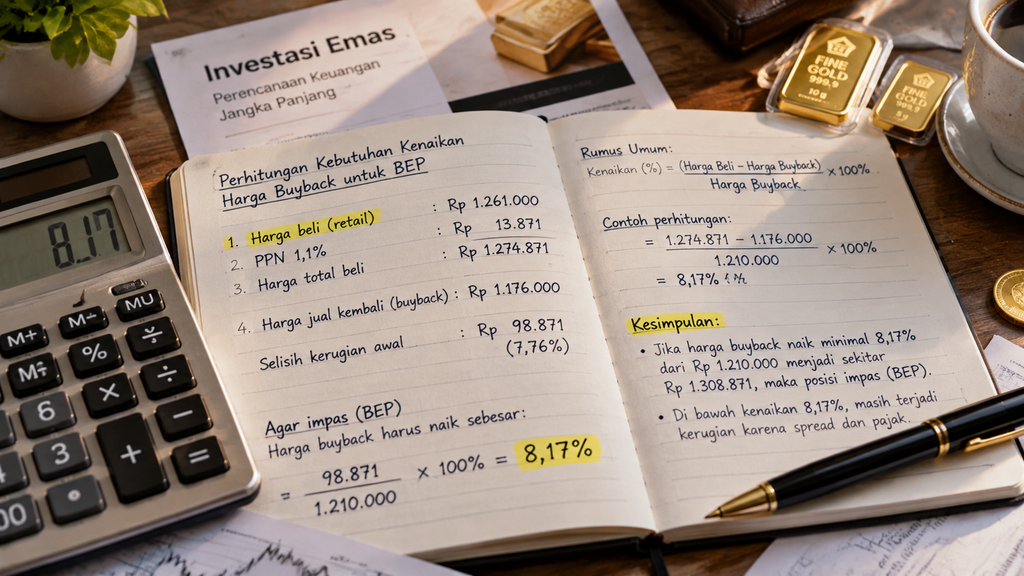 Investasi Emas
Perencanaan Keuangan
Jangka Panjang
FINE
GOLD
999,9
10g
FINE
GOLD
5g
8,17
M+
M-
MU
%
÷
6
×
÷
3
+
−
00
=
Perhitungan Kebutuhan Kenaikan
Harga Buyback untuk BEP
1. Harga beli (retail) : Rp 1.261.000
2. PPN 1,1% : Rp 13.871
3. Harga total beli : Rp 1.274.871
4. Harga jual kembali (buyback) : Rp 1.176.000
Selisih kerugian awal : Rp 98.871
(7,76%)
Agar impas (BEP)
Harga buyback harus naik sebesar:
= 98.871 × 100% = 8,17%
1.210.000
Rumus Umum:
Kenaikan (%) = (Harga Beli – Harga Buyback) × 100%
Harga Buyback
Contoh perhitungan:
= 1.274.871 – 1.176.000 × 100%
1.210.000
= 8,17%
Kesimpulan:
• Jika harga buyback naik minimal 8,17%
dari Rp 1.210.000 menjadi sekitar
Rp 1.308.871, maka posisi impas (BEP).
• Di bawah kenaikan 8,17%, masih terjadi
kerugian karena spread dan pajak.